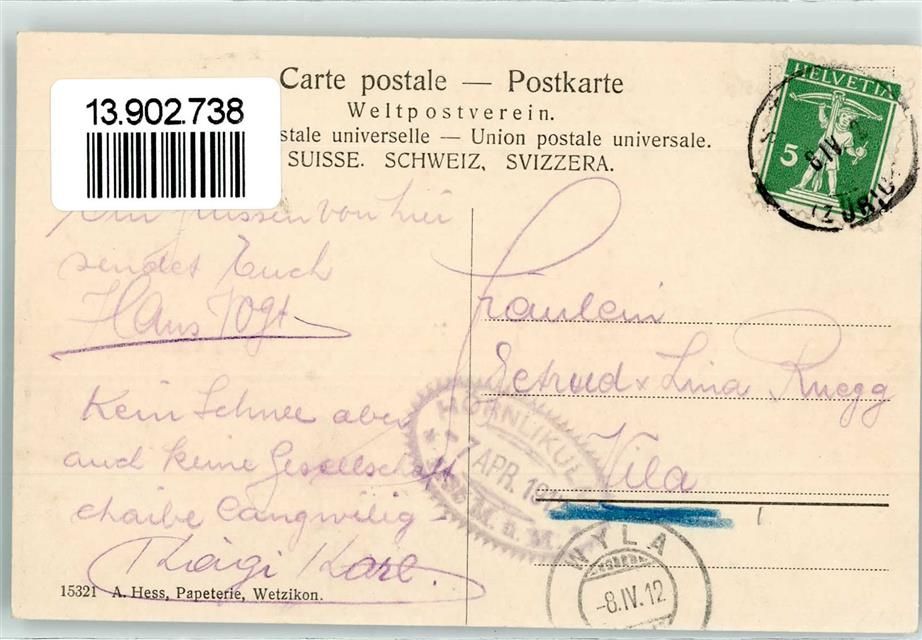 Carte postale — Postkarte
Weltpostverein.
stale universelle — Union postale universale.
SUISSE. SCHWEIZ, SVIZZERA.
13.902.738
HELVETIA
5
8.IV.
ZÜRICH
von hier
sendet Euch
Hans Vogt
Kein Schnee aber
auch keine Gesellschaft
chaibe langwilig
Kägi Karl.
Fräulein
Getrud & Lina Rüegg
Wila
HÖRNLIKULM
7 APR. 19
M. ü. M.
WYLA
-8.IV.12
15321 A. Hess, Papeterie, Wetzikon.